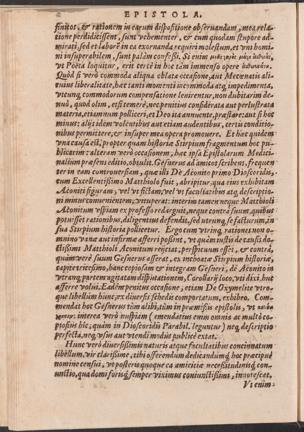 EPISTOLA.
finitos, & rationem in earum dispositione obseruandam, mea relatione
peritißimè, sunt vehementer, & cum quodam stupore admirati,
sed et labore in ea exornanda requiri molestum, et vni homini
insuperabilem, sunt palàm confessi. Si enim
vt Poëta loquitur, erit certè hic tam immenso opere
Quòd si verò commoda aliqua oblata occasione, aut Mecœnatis alicuius
liberalitate, hoc tanti momenti incommoda atq; impedimenta,
vtcunq; commodorum compensatione lenirentur, non dubitarim denuò,
quod olim, etsi temerè, nec penitius considerata aut perlustrata
materia, etiamnum polliceri, et Deo ita annuente, præstare: aut si hoc
minus: alijs idem volentibus aut etiam audentibus, certis conditionibus
permittere, & insuper mea opera promouere. Et hæc quidem
vna causa est, propter quam historiæ Stirpium fragmentum hoc publicarim:
alteram verò occasionem, hæc ipsa Epistolarum Medicinalium
præsens editio, obtulit. Gesnerus ad amicos scribens, frequenter
in eam controuersiam, quæ illi De Aconito primo Dioscoridis,
cum Excellentißimo Matthiolo fuit, abripitur, qua inter exhibitam
Aconiti figuram, vel vt fictam, vel vt facultatibus atq; descriptioni
minus conuenientem, vituperat: interim tamen neque Matthioli
Aconitum vsquam ex professo redarguit, neque contra suum, quibus
potuisset rationibus, diligenter defendit, sed vtrunq; se facturum, in
sua Stirpium historia pollicetur. Ergo cum vtrinq; rationes non omnino
vanæ aut infirmæ afferri possint, vt quàm iustis de causis doctißimus
Matthioli Aconitum reijciat, perspicuum esset, & contrà,
quàm verè suum Gesnerus asserat, ex inchoatæ Stirpium historiæ,
capite tricesimo, hanc copiosam & integram Gesneri, de Aconito in
vtranq; partem agitatam disputationem, Corollarij loco, vti dixi, huc
afferre volui. Eadem penitus occasione, etiam De Oxymelite vtroque
libellum hunc, ex diuersis schedis comportatum, exhibeo. Commendat
hoc Gesnerus tùm aliàs, tùm in præmissis epistolis, vt
interea verò nuspiam (emendatius enim omnia ac multò copiosius
hic, quàm in Dioscoridis Parabol. leguntur) neq; descriptio
perfecta, neq; vsus aut vtendi modus publicè extat.
Hunc verò diuersißimis naturis atque facultatibus concinnatum
libellum, vir clarißime, tibi offerendum dedicandumq; hoc præcipuè
nomine censui, vt posteris quoque ea amicitiæ necessitudinisq; coniunctio,
qua domi forisq; semper viximus coniunctißimi, innotescat.
Vt enim